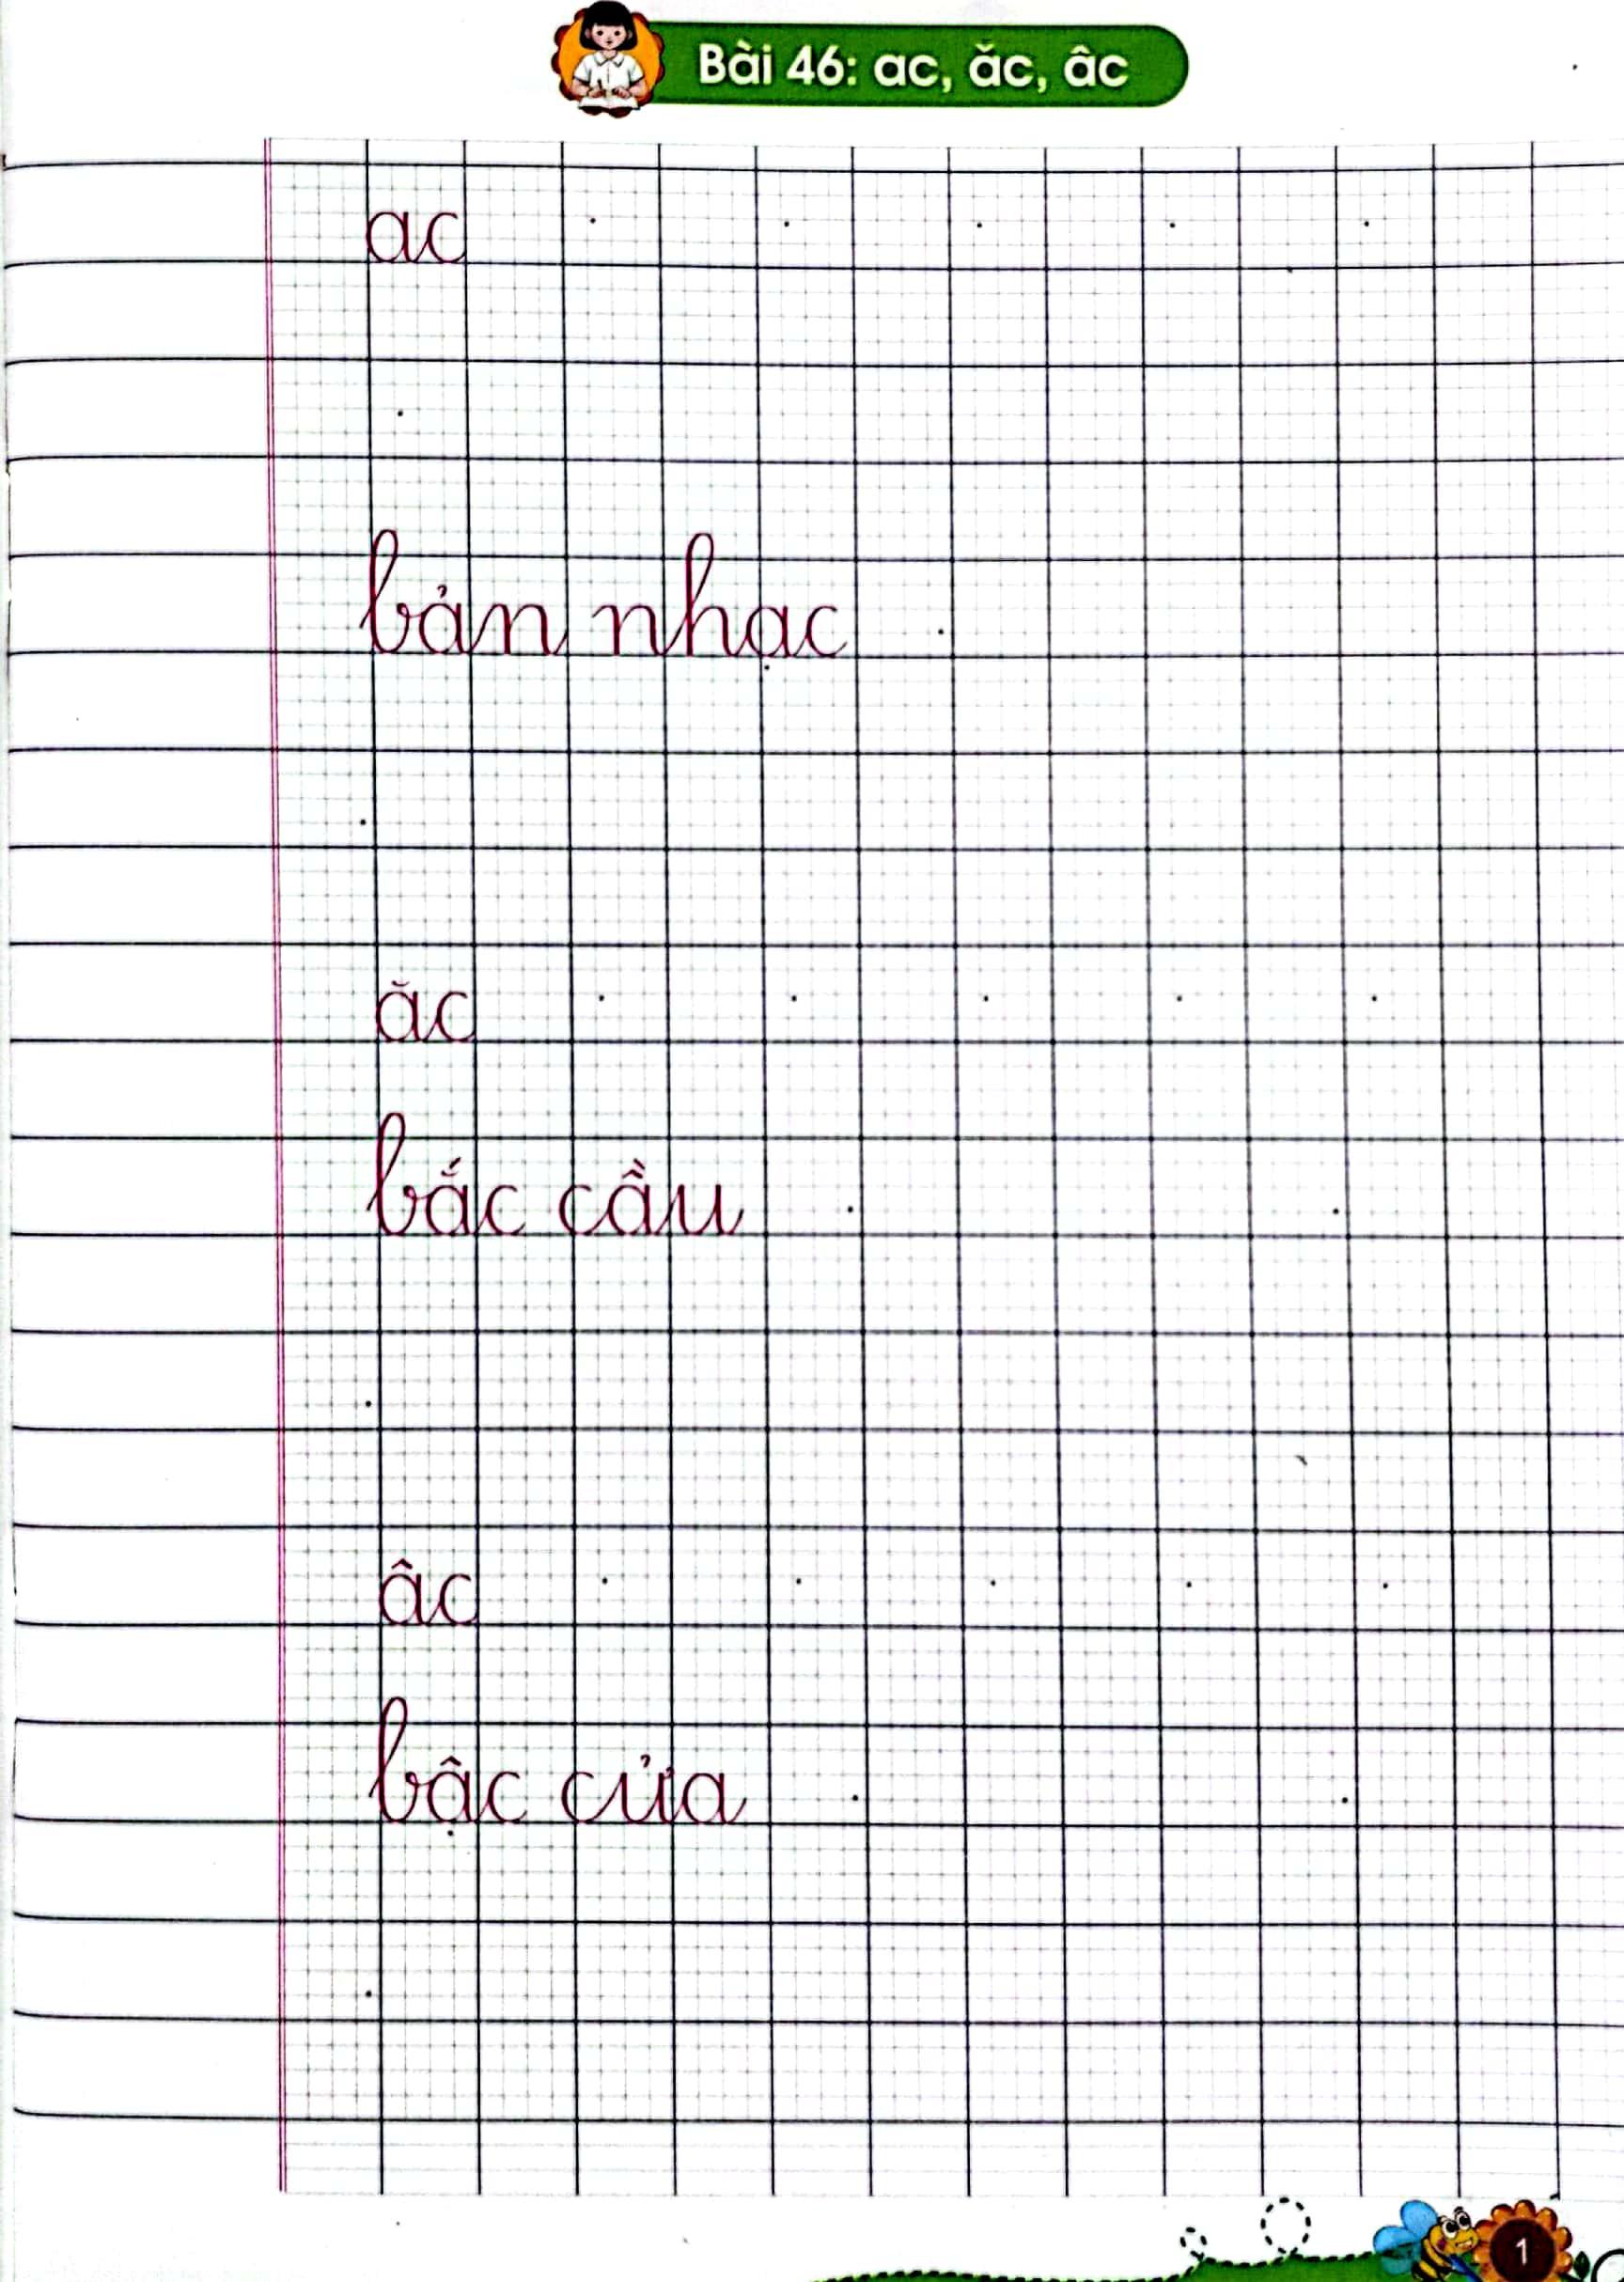 Bài 46: ac, ăc, âc
ac
bản nhạc
ăc
bắc cầu
âc
bậc cửa
1